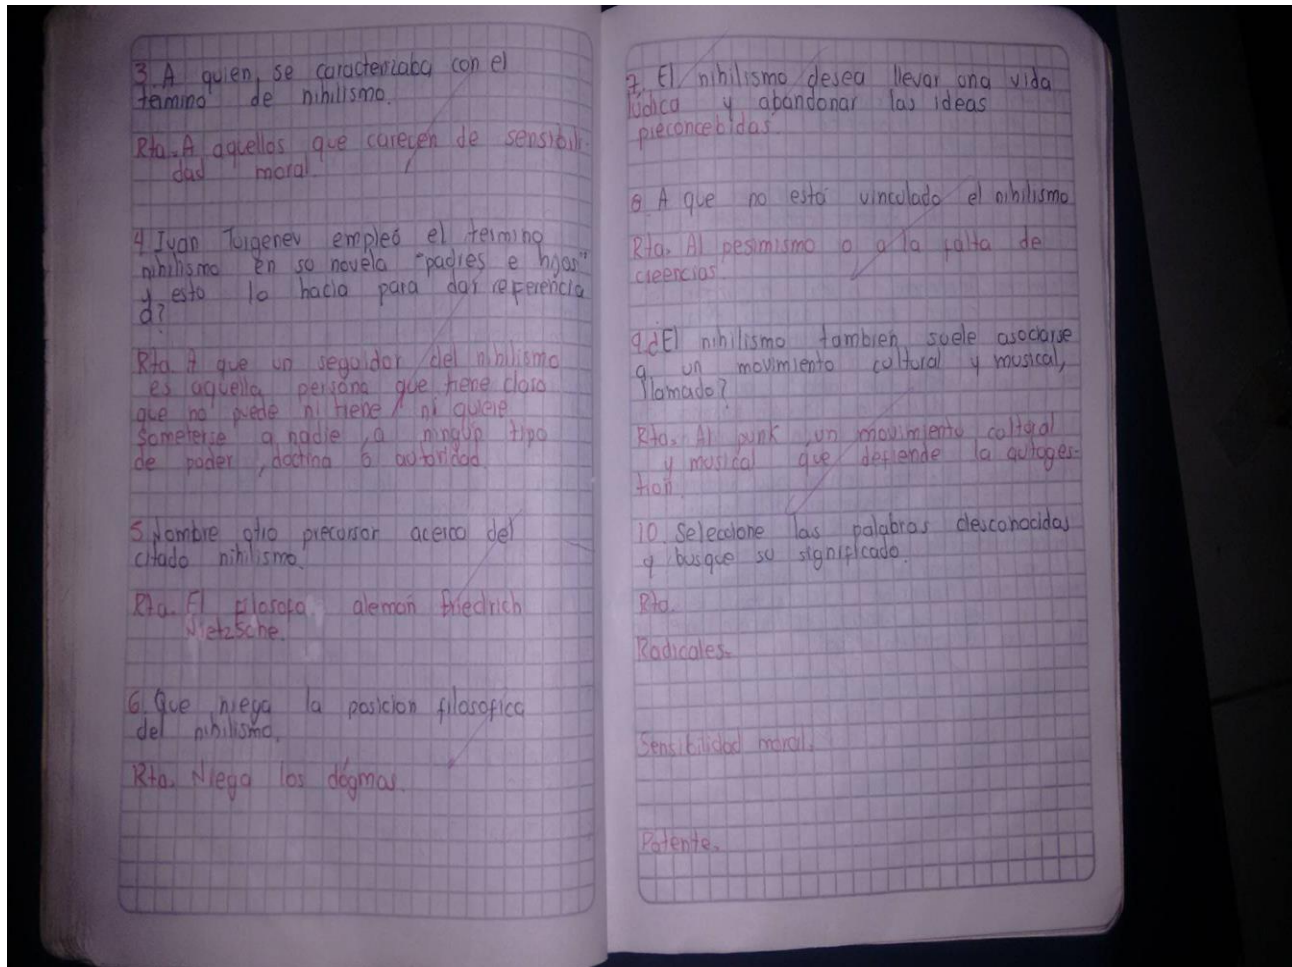 3. A quien, se caracterizaba con el
termino de nihilismo.
Rta. A aquellos que carecen de sensibili-
dad moral.
4. Ivan Turgenev empleó el termino
nihilismo en su novela "padres e hijos"
y esto lo hacia para dar referencia
a?
Rta. A que un seguidor del nihilismo
es aquella persona que tiene claro
que no puede ni tiene, ni quiere
someterse a nadie, a ningún tipo
de poder, doctrina ó autoridad.
5. Nombre otro precursor acerca del
citado nihilismo.
Rta. El filosofo alemán Friedrich
Nietzsche.
6. Que niega la posicion filosofica
del nihilismo.
Rta. Niega los dógmas.
7. El nihilismo desea llevar una vida
lúdica y abandonar las ideas
preconcebidas
8. A que no está vinculado el nihilismo
Rta. Al pesimismo o a la falta de
creencias.
9. ¿El nihilismo tambien suele asociarse
a un movimiento cultural y musical,
llamado?
Rta. Al punk, un movimiento cultural
y musical que defiende la autoges-
tion.
10. Seleccione las palabras desconocidas
y busque su significado.
Rta.
Radicales.
Sensibilidad moral.
Potente.